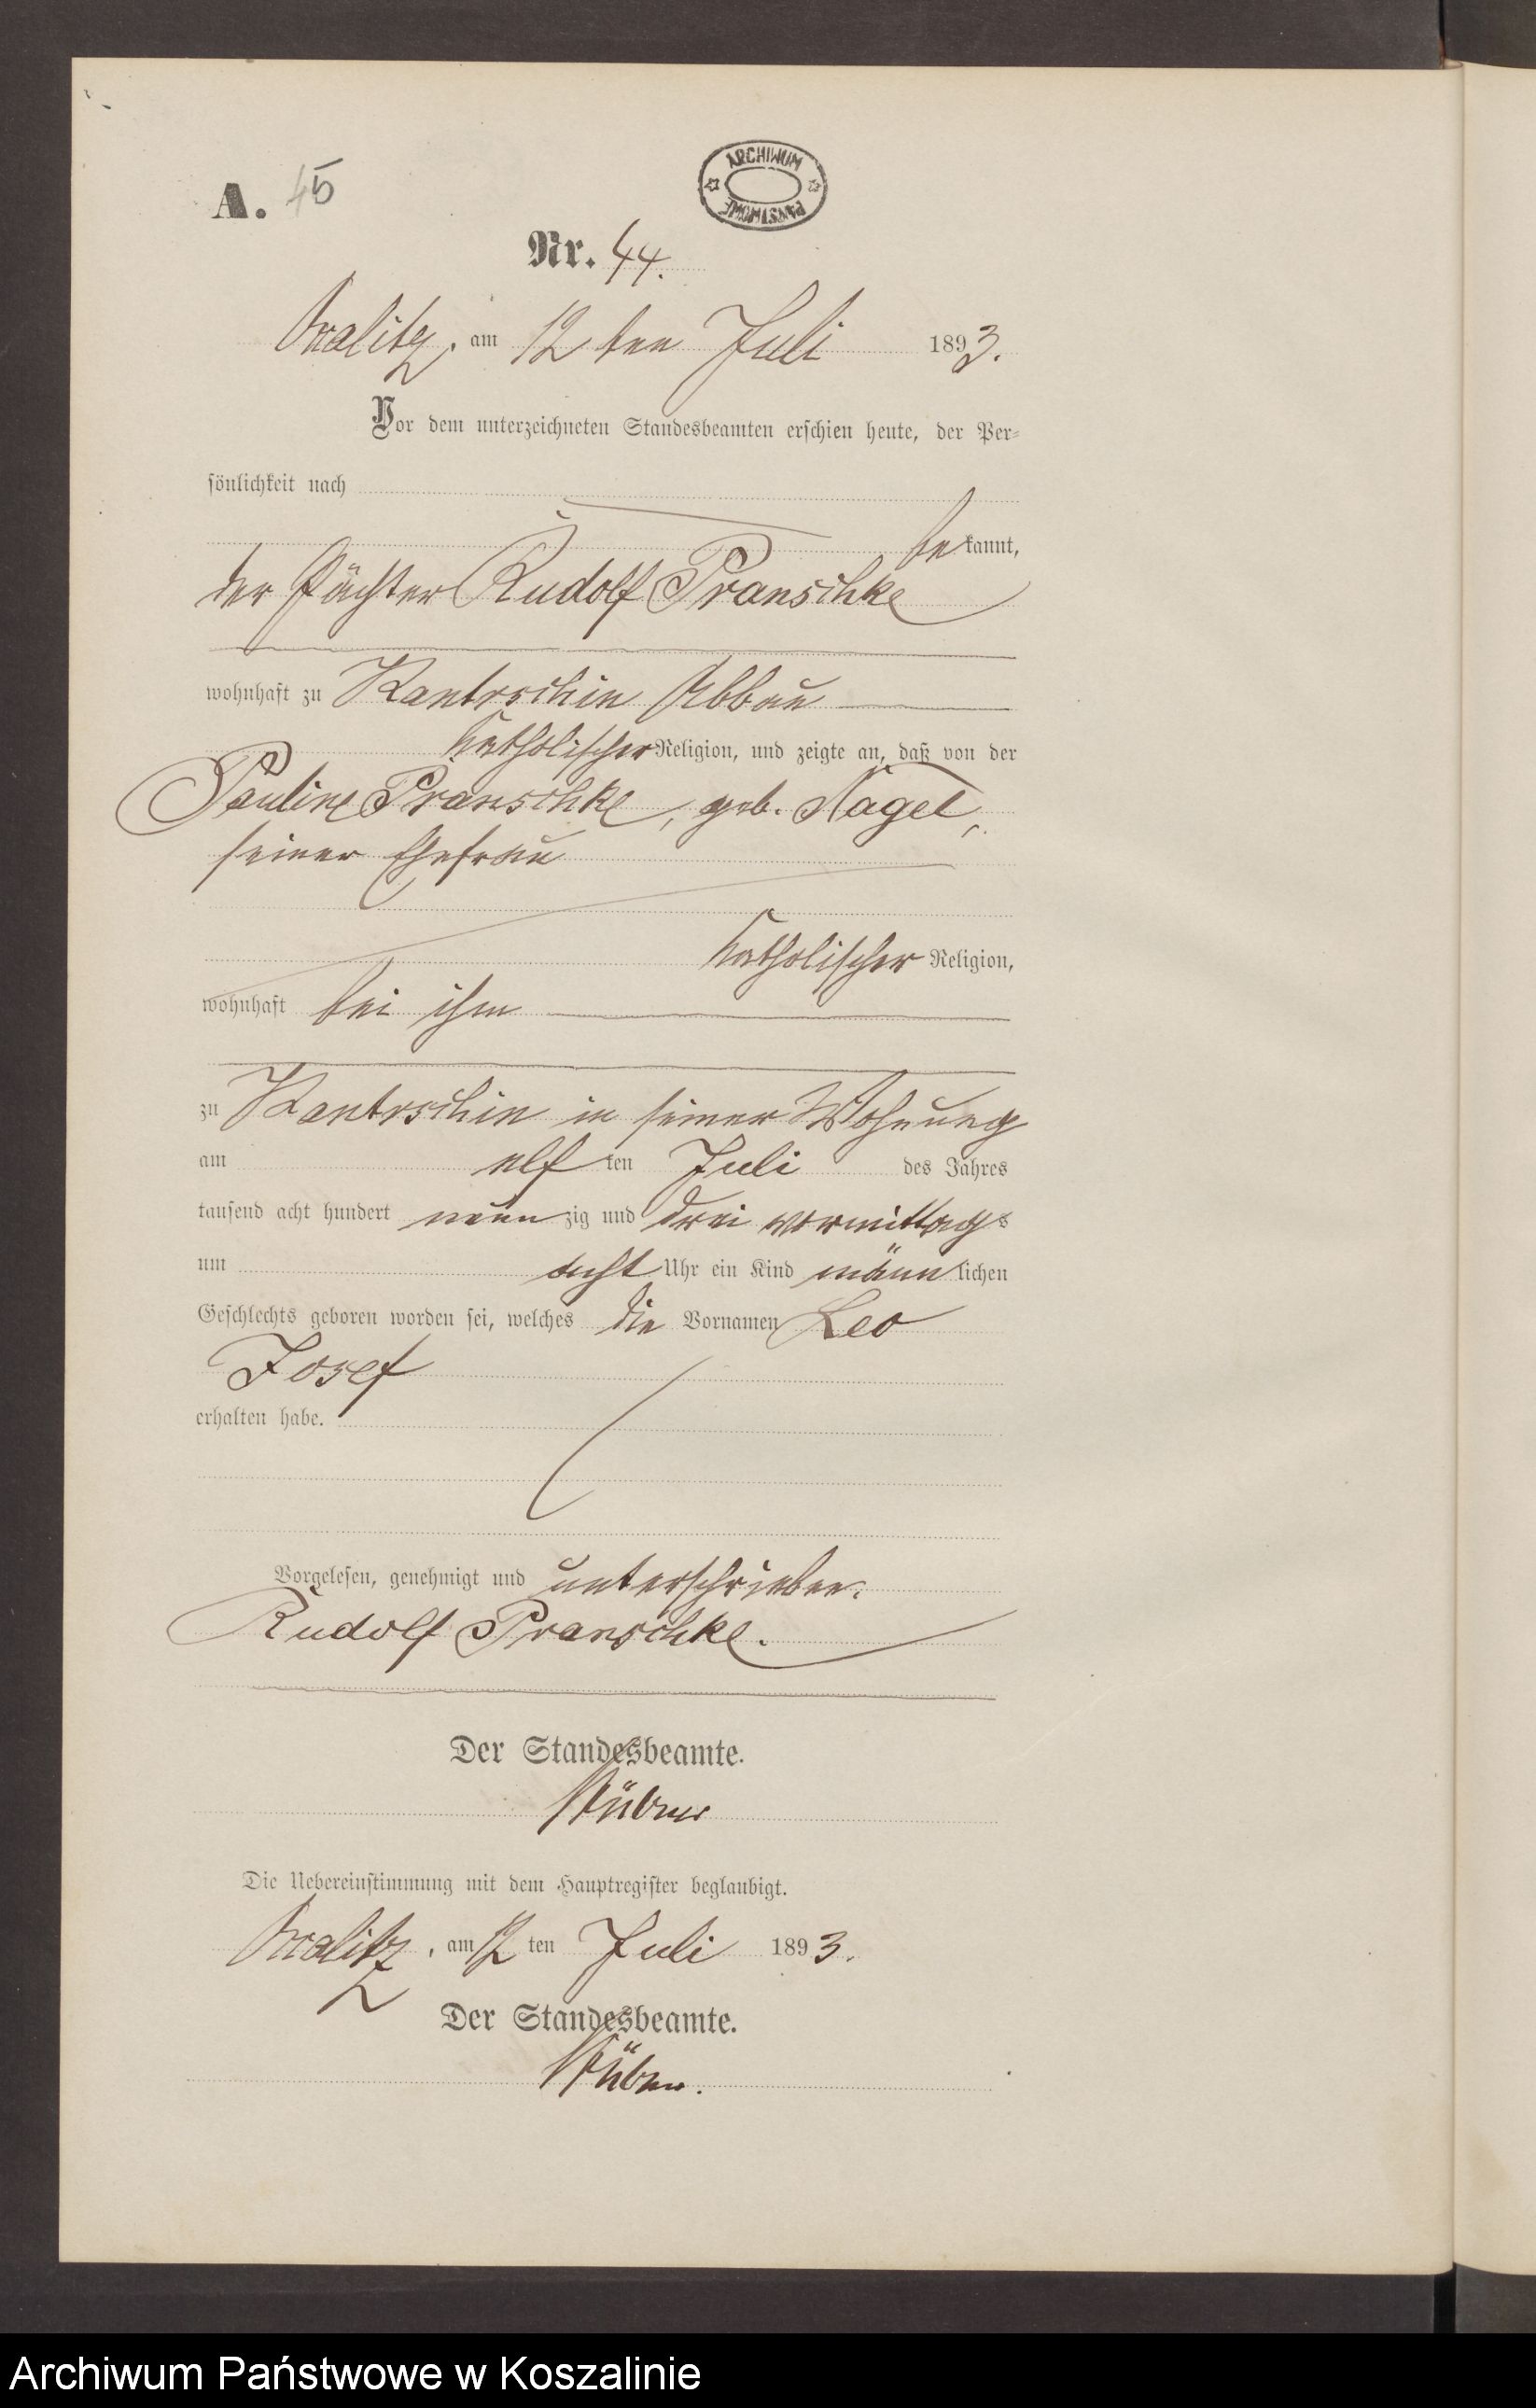 A. 45
ARCHIWUM PAŃSTWOWE
Nr. 44.
Oslawitz, am 12 ten Juli 1893.
Vor dem unterzeichneten Standesbeamten erschien heute, der Per=
sönlichkeit nach
bekannt,
der Pächter Rudolf Pranschke
wohnhaft zu Kantrschin Abbau
katholischer Religion, und zeigte an, daß von der
Pauline Pranschke, geb. Nagel,
seiner Ehefrau
katholischer Religion,
wohnhaft bei ihm
zu Kantrschin in seiner Wohnung
am elf ten Juli des Jahres
tausend acht hundert neun zig und drei vormittags
um acht Uhr ein Kind männlichen
Geschlechts geboren worden sei, welches die Vornamen Leo
Josef
erhalten habe.
Vorgelesen, genehmigt und unterschrieben.
Rudolf Pranschke.
Der Standesbeamte.
Die Uebereinstimmung mit dem Hauptregister beglaubigt.
am 12 ten Juli 1893.
Der Standesbeamte.
Archiwum Państwowe w Koszalinie